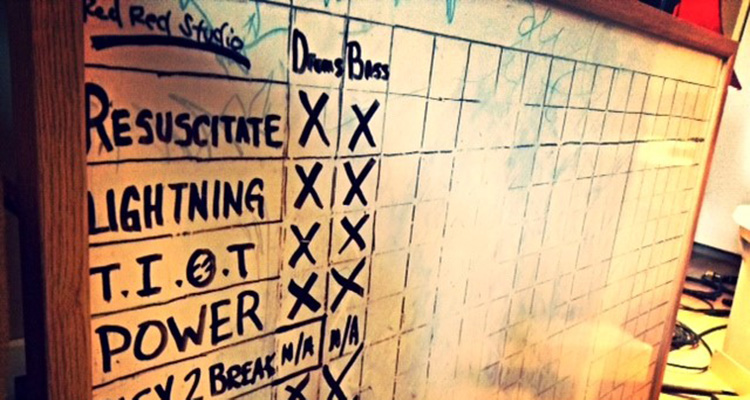 Red Red Studio
Drums Bass
RESUSCITATE X X
LIGHTNING X X
T.I.O.T X X
POWER X X
2 BREAK N/A N/A
X X